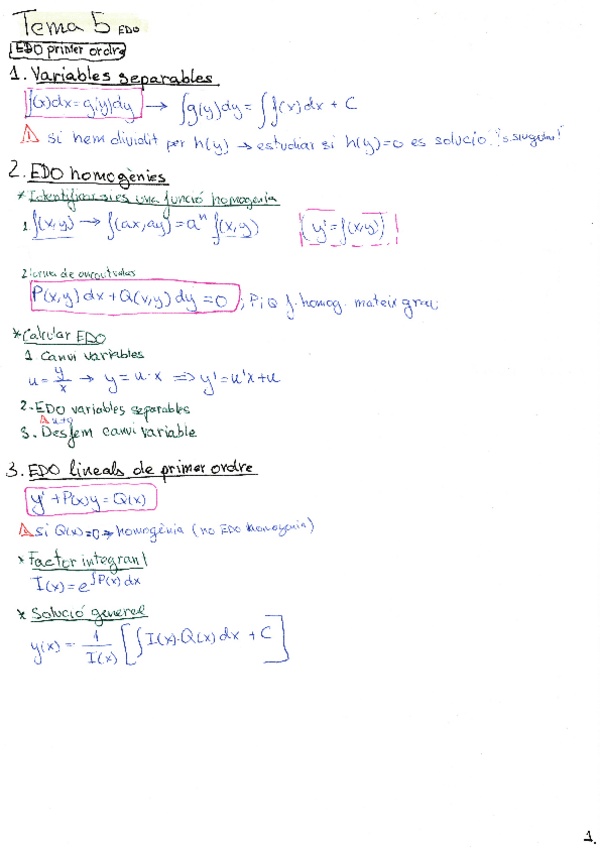 Tema 5 EDO
EDO primer ordre
1. Variables separables
f(x)dx = g(y)dy → ∫g(y)dy = ∫f(x)dx + C
⚠ si hem dividit per h(y) → estudiar si h(y)=0 es solució. "s.singular"
2. EDO homogènies
* Identificar si es una funció homogenia
1. f(x,y) → f(ax,ay) = aⁿ f(x,y) (y' = f(x,y))
2 forma de
P(x,y)dx + Q(x,y)dy = 0 ; P i Q f. homog. mateix grau
* Calcular EDO
1 Canvi variables
u = y/x → y = u·x ⇒ y' = u'x+u
2. EDO variables separables
3. Desfem canvi variable
3. EDO lineals de primer ordre
y' + P(x)y = Q(x)
⚠ si Q(x)=0 → homogènia (no EDO homogenia)
* Factor integrant
I(x) = e^∫P(x)dx
* Solució general
y(x) = 1/I(x) [∫I(x)·Q(x)dx + C]
1.